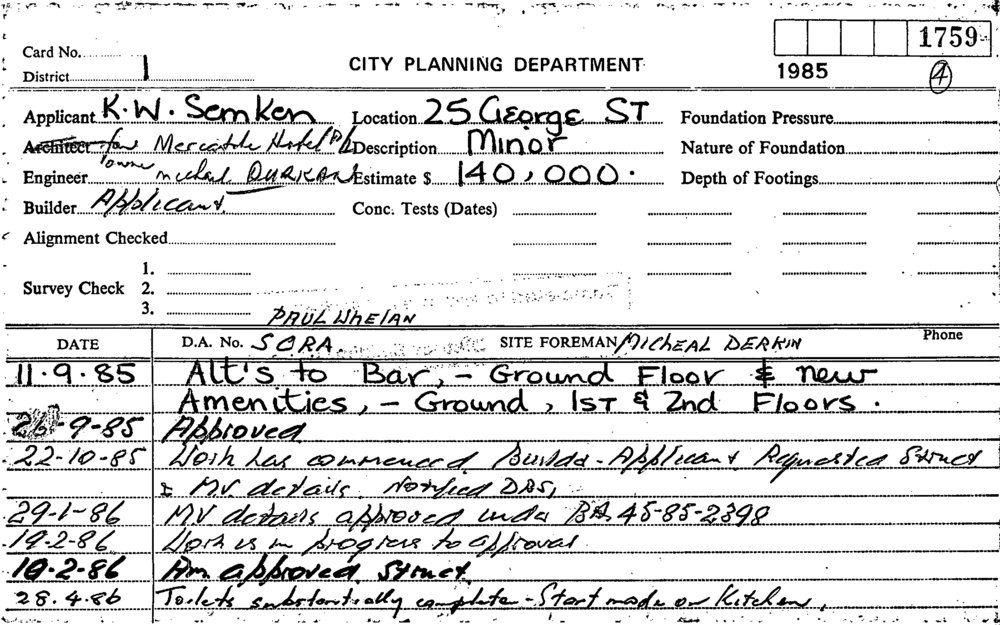 1759
Card No.
1985
4
District 1
CITY PLANNING DEPARTMENT
Applicant K.W. Semken Location 25 George ST Foundation Pressure
Architect for Mercantile Hotel P/L Description Minor Nature of Foundation
Engineer owner micheal DURKAN Estimate $ 140,000. Depth of Footings
Builder Applicant. Conc. Tests (Dates)
Alignment Checked
1.
Survey Check 2.
3.
PAUL WHELAN
DATE D.A. No. SCRA. SITE FOREMAN MICHEAL DERKIN Phone
11.9.85 Alt's to Bar, - Ground Floor & new
Amenities, - Ground, 1ST & 2nd Floors.
26-9-85 Approved
22-10-85 Work has commenced, Builder - Applicant Requested Struct
& MV details. Notified DBS,
29-1-86 MV details approved under BA 45-85-2398
19-2-86 Work is in progress to approval.
19-2-86 Am. approved Struct.
28.4.86 Toilets substantially complete - Start made on Kitchen.